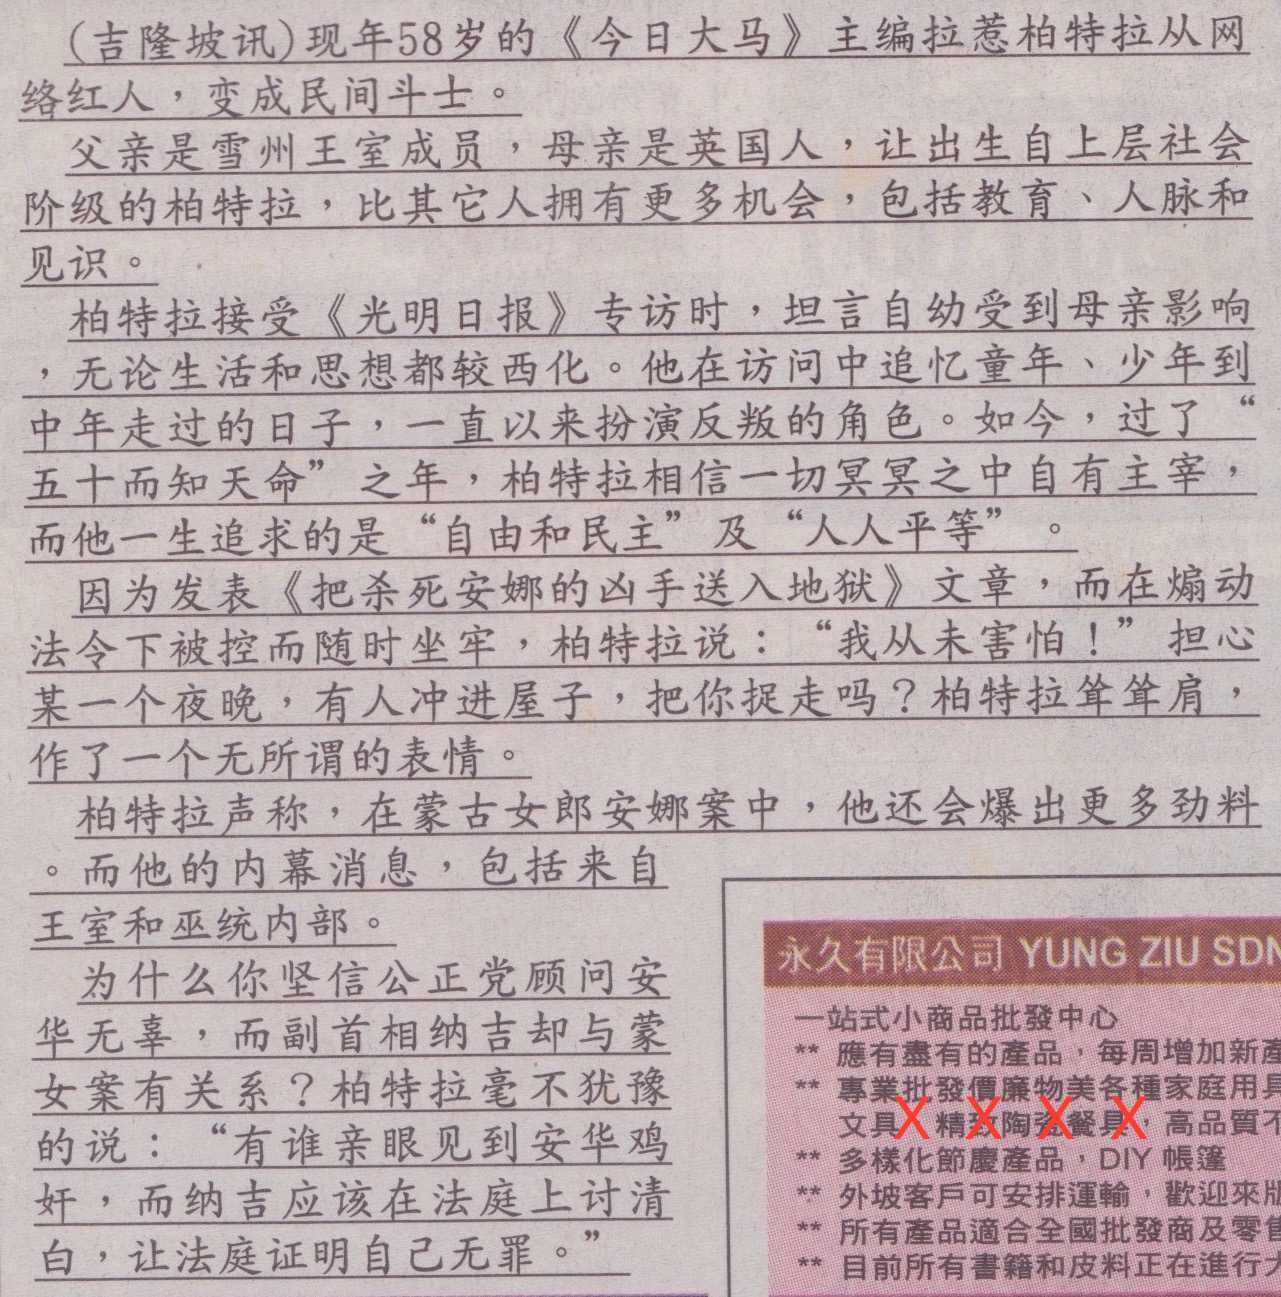 (吉隆坡讯)现年58岁的《今日大马》主编拉惹柏特拉从网
络红人，变成民间斗士。
父亲是雪州王室成员，母亲是英国人，让出生自上层社会
阶级的柏特拉，比其它人拥有更多机会，包括教育、人脉和
见识。
柏特拉接受《光明日报》专访时，坦言自幼受到母亲影响
，无论生活和思想都较西化。他在访问中追忆童年、少年到
中年走过的日子，一直以来扮演反叛的角色。如今，过了“
五十而知天命”之年，柏特拉相信一切冥冥之中自有主宰，
而他一生追求的是“自由和民主”及“人人平等”。
因为发表《把杀死安娜的凶手送入地狱》文章，而在煽动
法令下被控而随时坐牢，柏特拉说：“我从未害怕！”担心
某一个夜晚，有人冲进屋子，把你捉走吗？柏特拉耸耸肩，
作了一个无所谓的表情。
柏特拉声称，在蒙古女郎安娜案中，他还会爆出更多劲料
。而他的内幕消息，包括来自
王室和巫统内部。
为什么你坚信公正党顾问安
华无辜，而副首相纳吉却与蒙
女案有关系？柏特拉毫不犹豫
的说：“有谁亲眼见到安华鸡
奸，而纳吉应该在法庭上讨清
白，让法庭证明自己无罪。”
永久有限公司 YUNG ZIU SDN
一站式小商品批發中心
** 應有盡有的產品，每周增加新產
** 專業批發價廉物美各種家庭用具
文具 X 精緻 X 陶瓷 X 餐具 X，高品質不
** 多樣化節慶產品，DIY 帳篷
** 外坡客戶可安排運輸，歡迎來
** 所有產品適合全國批發商及零售
** 目前所有書籍和皮料正在進行大